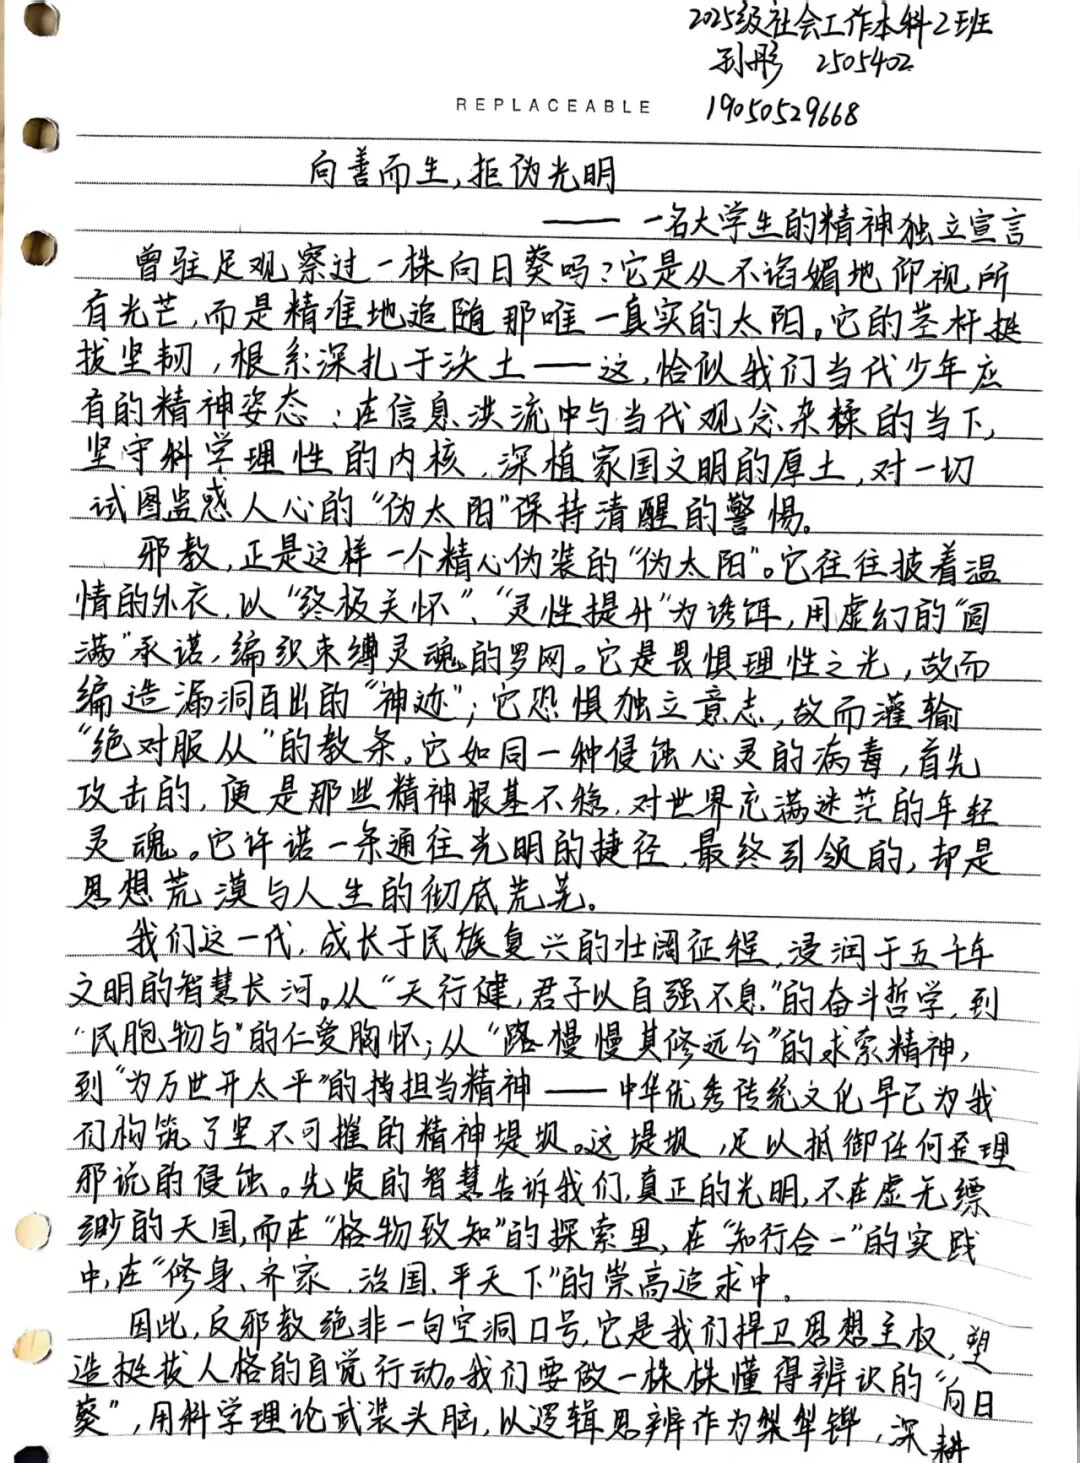 2025级社会工作本科2班
孙彤 2505402
REPLACEABLE
19050529668
向善而生,拒伪光明
——一名大学生的精神独立宣言
曾驻足观察过一株向日葵吗?它是从不谄媚地仰视所
有光芒,而是精准地追随那唯一真实的太阳。它的茎杆挺
拔坚韧,根系深扎于沃土——这,恰似我们当代少年应
有的精神姿态:在信息洪流中与当代观念杂糅的当下,
坚守科学理性的内核,深植家国文明的厚土,对一切
试图蛊惑人心的“伪太阳”保持清醒的警惕。
邪教,正是这样一个精心伪装的“伪太阳”。它往往披着温
情的外衣,以“终极关怀”、“灵性提升”为诱饵,用虚幻的“圆
满”承诺,编织束缚灵魂的罗网。它是畏惧理性之光,故而
编造漏洞百出的“神迹”;它恐惧独立意志,故而灌输
“绝对服从”的教条。它如同一种侵蚀心灵的病毒,首先
攻击的,便是那些精神根基不稳,对世界充满迷茫的年轻
灵魂。它许诺一条通往光明的捷径,最终引领的,却是
思想荒漠与人生的彻底荒芜。
我们这一代,成长于民族复兴的壮阔征程,浸润于五千年
文明的智慧长河。从“天行健,君子以自强不息”的奋斗哲学,到
“民胞物与”的仁爱胸怀;从“路慢慢其修远兮”的求索精神,
到“为万世开太平”的担当精神——中华优秀传统文化早已为我
们构筑了坚不可摧的精神堤坝。这堤坝,足以抵御任何歪理
邪说的侵蚀。先贤的智慧告诉我们,真正的光明,不在虚无缥
缈的天国,而在“格物致知”的探索里,在“知行合一”的实践
中,在“修身、齐家、治国、平天下”的崇高追求中。
因此,反邪教绝非一句空洞口号,它是我们捍卫思想主权,塑
造挺拔人格的自觉行动。我们要做一株株懂得辨识的“向日
葵”,用科学理论武装头脑,以逻辑思辨作为犁铧,深耕